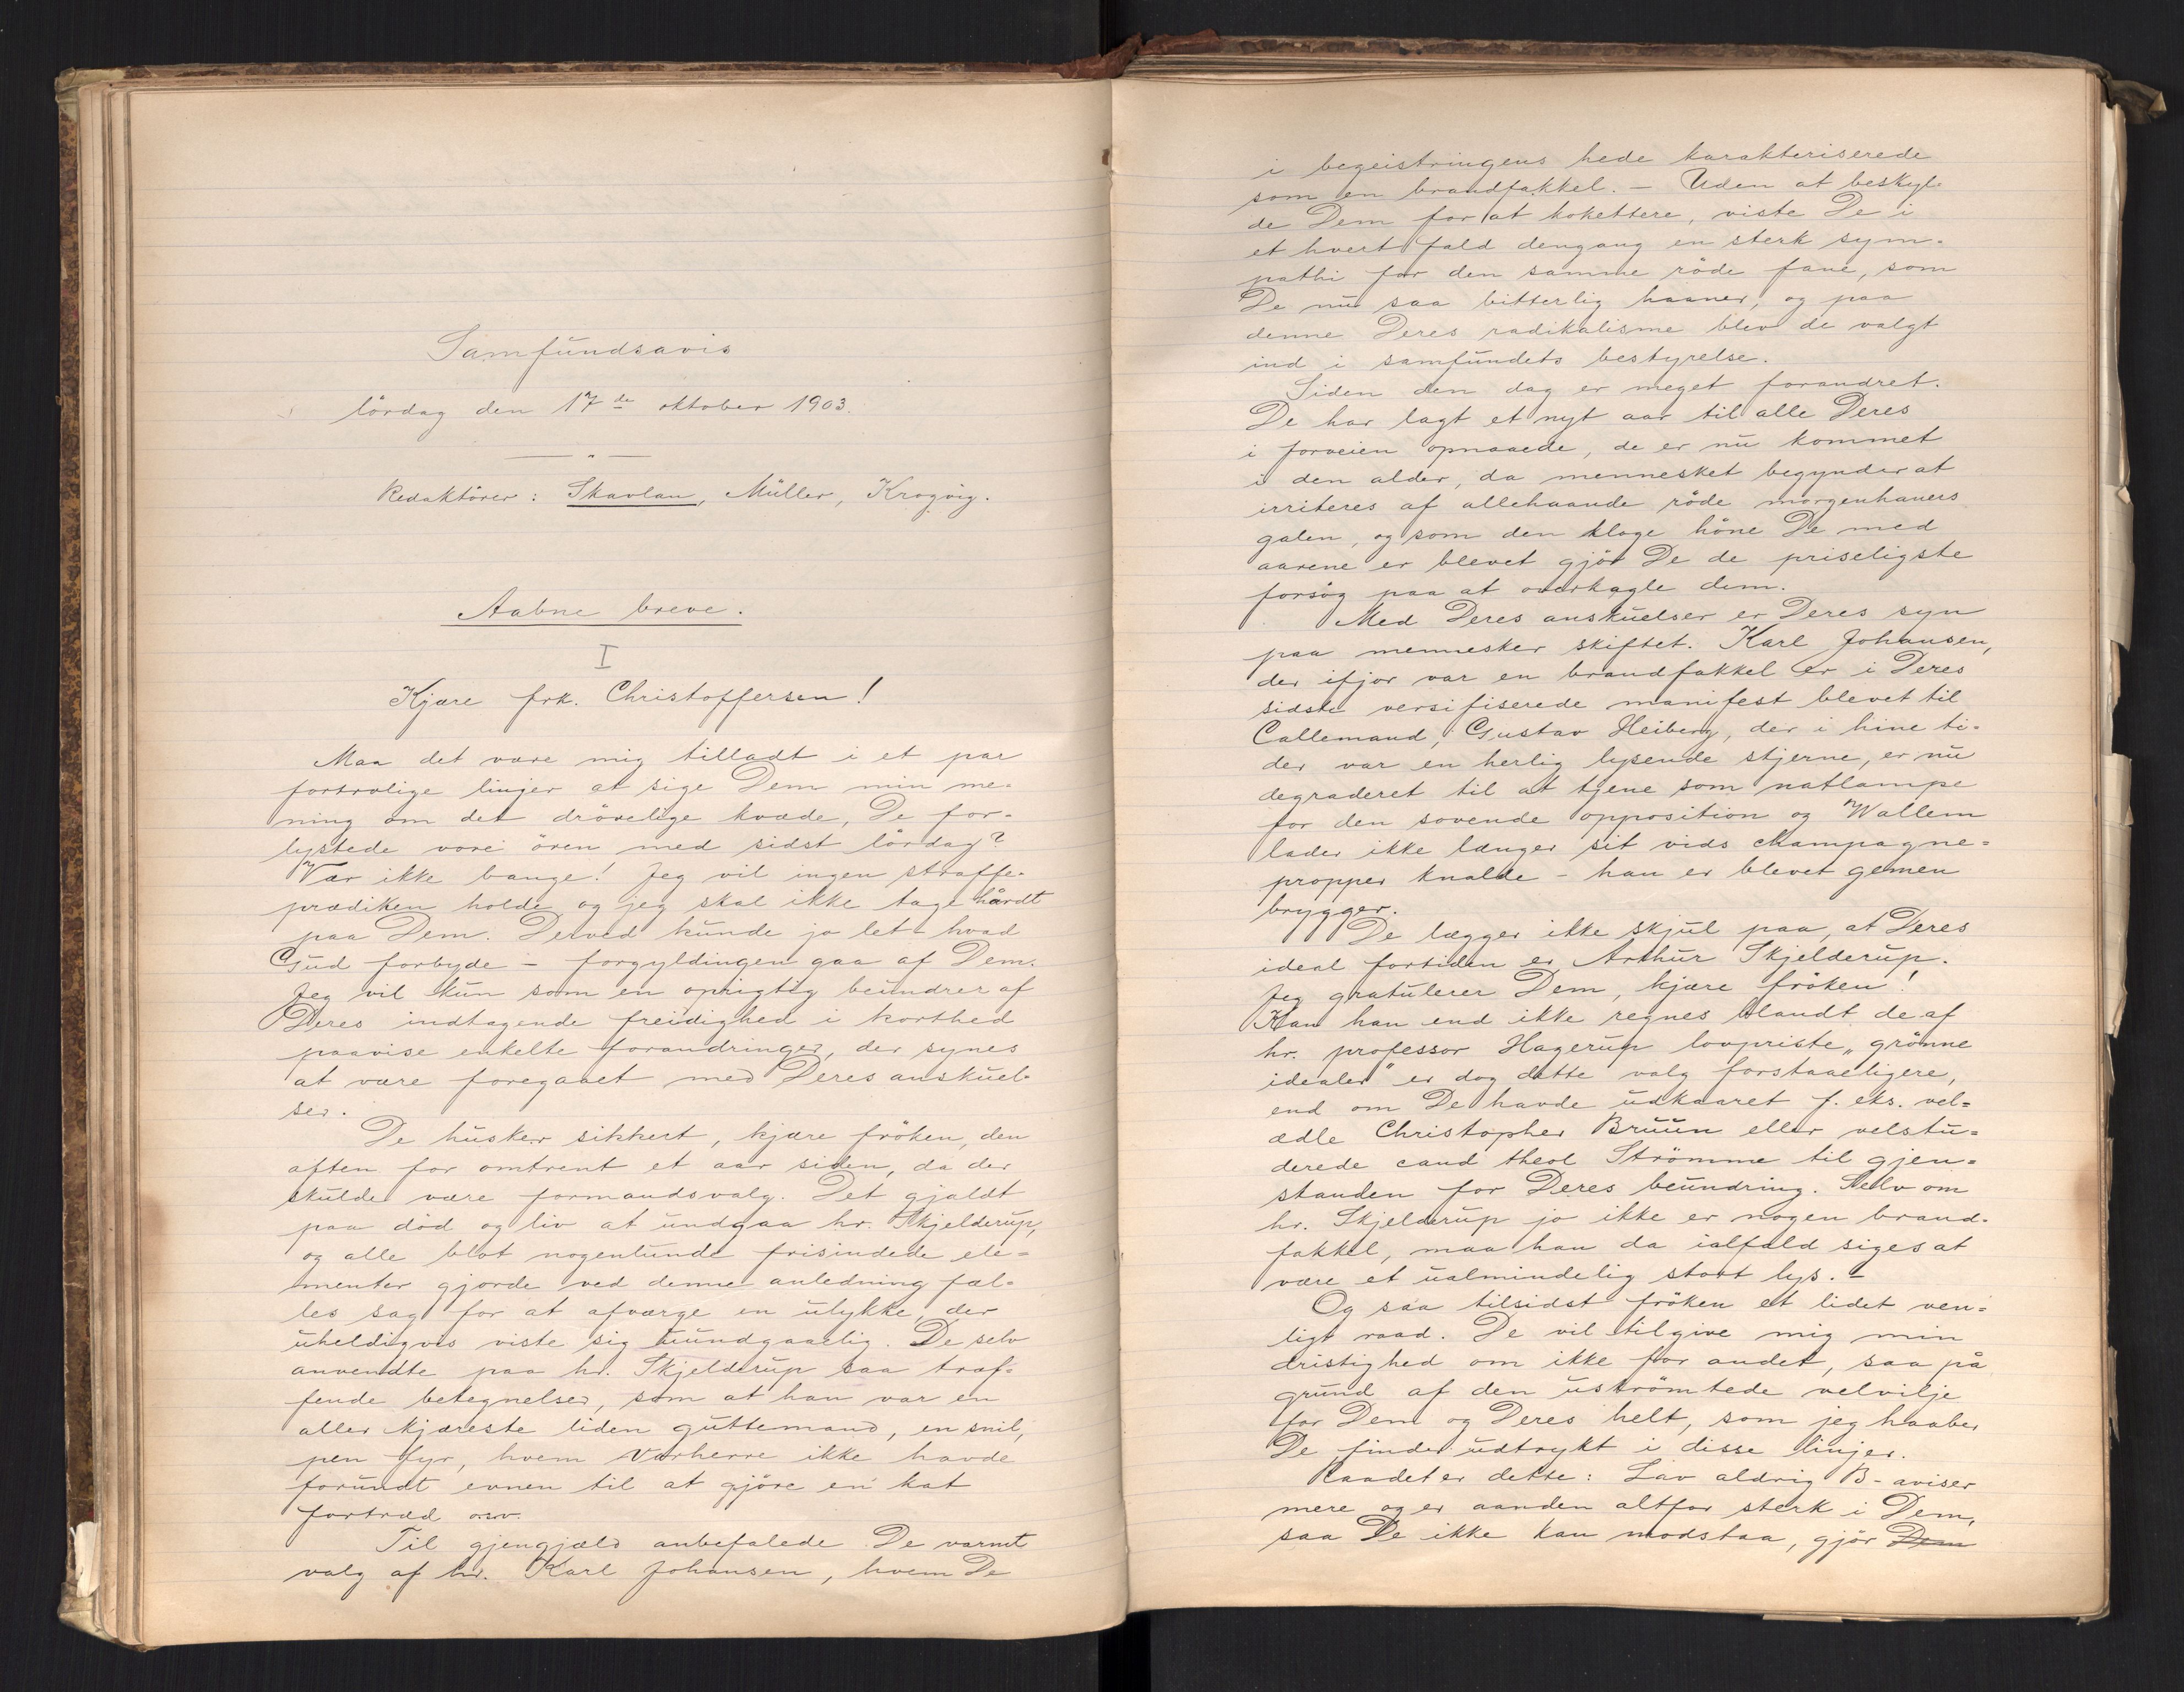 Samfundsavis
lördag den 17de oktober 1903.
Redaktörer: Skavlan, Müller, Krogvig.
Aabne breve.
I
Kjære frk. Christoffersen!
Maa det være mig tilladt i et par
fortrolige linjer at sige Dem min me-
ning om det drövelige kvæde, De for-
lystede vore ören med sidst lördag?
Vær ikke bange! Jeg vil ingen straffe-
prædiken holde og jeg skal ikke tage hårdt
paa Dem. Derved kunde jo let - hvad
Gud forbyde - forgyldingen gaa af Dem.
Jeg vil kun som en oprigtig beundrer af
Deres indtagende freidighed i korthed
paavise enkelte forandringer, der synes
at være foregaaet med Deres anskuel-
ser.
De husker sikkert, kjære fröken, den
aften for omtrent et aar siden, da der
skulde være formandsvalg. Det gjaldt
paa död og liv at undgaa hr. Skjelderup,
og alle blot nogenlunde frisindede ele=
menter gjorde ved denne anledning fæl-
les sag for at afværge en ulykke, der
uheldigvis viste sig uundgaaelig. De selv
anvendte paa hr. Skjelderup saa træf-
fende betegnelser, som at han var en
aller kjæreste liden guttemand, en snil,
pen fyr, hvem Vorherre ikke havde
forundt evnen til at gjöre en kat
fortræd osv.
Til gjengjæld anbefalede De varmt
valg af hr. Karl Johansen, hvem De
i begeistringens hede karakteriserede
som en brandfakkel. - Uden at beskyl-
de Dem for at kokettere, viste De i
et hvert fald dengang en sterk sym-
pathi for den samme röde fane, som
De nu saa bitterlig haaner, og paa
denne Deres radikalisme blev de valgt
ind i samfundets bestyrelse.
Siden den dag er meget forandret.
De har lagt et nyt aar til alle Deres
i forveien opnaaede, de er nu kommet
i den alder, da mennesket begynder at
irriteres af allehaande röde morgenhaners
galen, og som den kloge höne De med
aarene er blevet gjör De de priseligste
forsög paa at overkagle dem.
Med Deres anskuelser er Deres syn
paa mennesker skiftet. Karl Johansen,
der ifjor var en brandfakkel er i Deres
sidste versifiserede manifest blevet til
Callemand, Gustav Heiberg, der i hine ti-
der var en herlig lysende stjerne, er nu
degraderet til at tjene som natlampe
for den sovende opposition og Wallem
lader ikke længer sit vids champagne=
propper knalde - han er blevet gemen
brygger.
De lægger ikke skjul paa, at Deres
ideal fortiden er Arthur Skjelderup.
Jeg gratulerer Dem, kjære fröken!
Kan han end ikke regnes blandt de af
hr. professor Hagerup lovpriste „grönne
idealer" er dog dette valg forstaaeligere,
end om De havde udkaaret f. eks. vel=
ædle Christopher Bruun eller velstu=
derede cand theol Strömme til gjen=
standen for Deres beundring. Selv om
hr. Skjelderup jo ikke er nogen brand-
fakkel, maa han da ialfald siges at
være et ualmindelig stort lys. -
Og saa tilsidst fröken et lidet ven=
ligt raad. De vil tilgive mig min
dristighed om ikke for andet, saa på
grund af den uskrömtede velvilje
for Dem og Deres helt, som jeg haaber
De finder udtrykt i disse linjer.
Raadet er dette: Lav aldrig B-aviser
mere og er aanden altfor sterk i Dem,
saa De ikke kan modstaa, gjör Dem